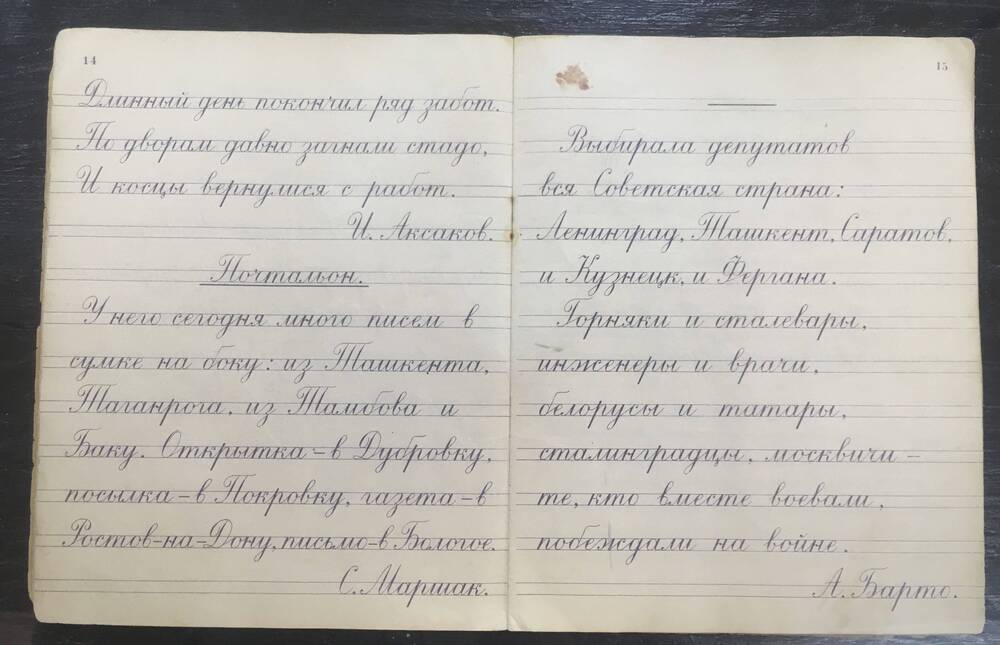 14
Длинный день покончил ряд забот.
По дворам давно загнали стадо,
И косцы вернулися с работ.
И. Аксаков.
Почтальон.
У него сегодня много писем в
сумке на боку: из Ташкента,
Таганрога, из Тамбова и
Баку. Открытка – в Дубровку,
посылка – в Покровку, газета – в
Ростов-на-Дону, письмо – в Бологое.
С. Маршак.
15
Выбирала депутатов
вся Советская страна:
Ленинград, Ташкент, Саратов,
и Кузнецк, и Фергана.
Горняки и сталевары,
инженеры и врачи,
белорусы и татары,
сталинградцы, москвичи –
те, кто вместе воевали,
побеждали на войне.
А. Барто.